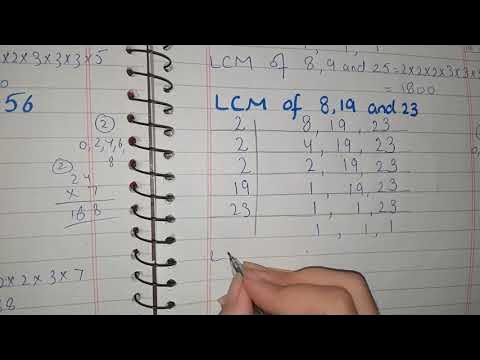 x2x3x3x3x5
0
56
2
0,2,4,6,
8
2
24
x 7
168
x2x3x7
8
LCM of 8,9 and 25=2x2x2x3x3x5
=1800
LCM of 8,19 and 23
2 8, 19, 23
2 4, 19, 23
2 2, 19, 23
19 1, 19, 23
23 1, 1, 23
1, 1, 1